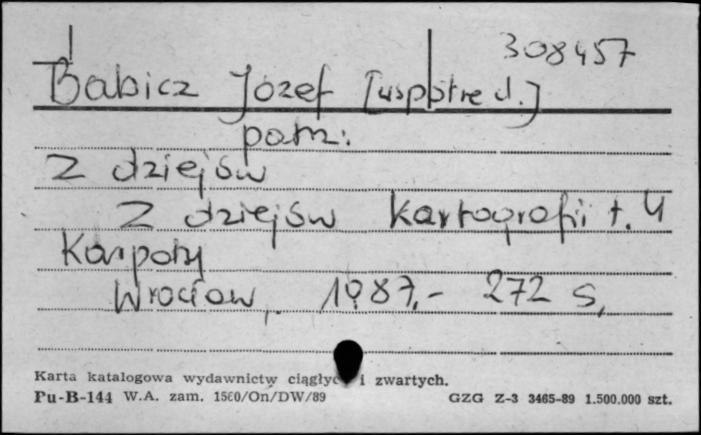 308457
Babicz Józef [współred.]
patrz:
Z dziejów
Z dziejów kartografii t. 4
Karpaty
Wrocław, 1987,- 272 s,
Karta katalogowa wydawnictw ciągłyc i zwartych.
Pu-B-144 W.A. zam. 1560/On/DW/89 GZG Z-3 3465-89 1.500.000 szt.